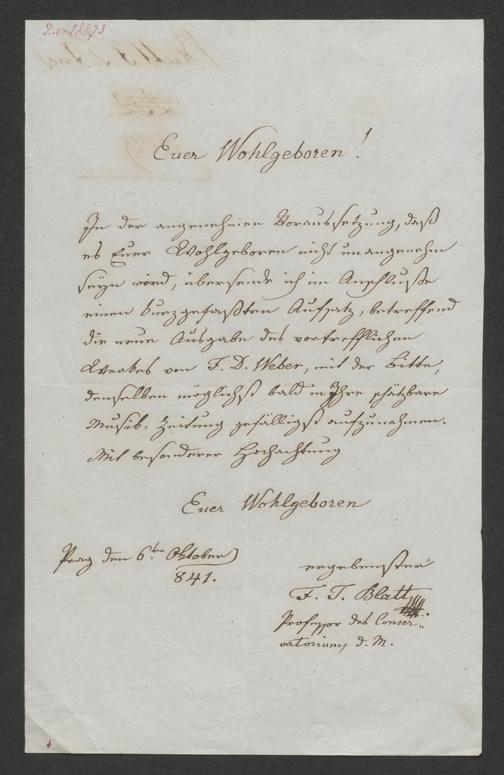 Euer Wohlgeboren!
In der angenehmen Voraussetzung, daß
es Euer Wohlgeboren nicht unangenehm
seyn wird, übersende ich im Anschluße
einen kurzgefaßten Aufsatz, betreffend
die neue Ausgabe des vortrefflichen
Werkes von F. D. Weber, mit der Bitte,
denselben möglichst bald in Ihre schätzbare
Musik-Zeitung gefälligst aufzunehmen.
Mit besonderer Hochachtung
Euer Wohlgeboren
Prag den 6ten Oktober
841.
ergebenster
F. T. Blatt
Professor des Conser-
vatoriums d. M.